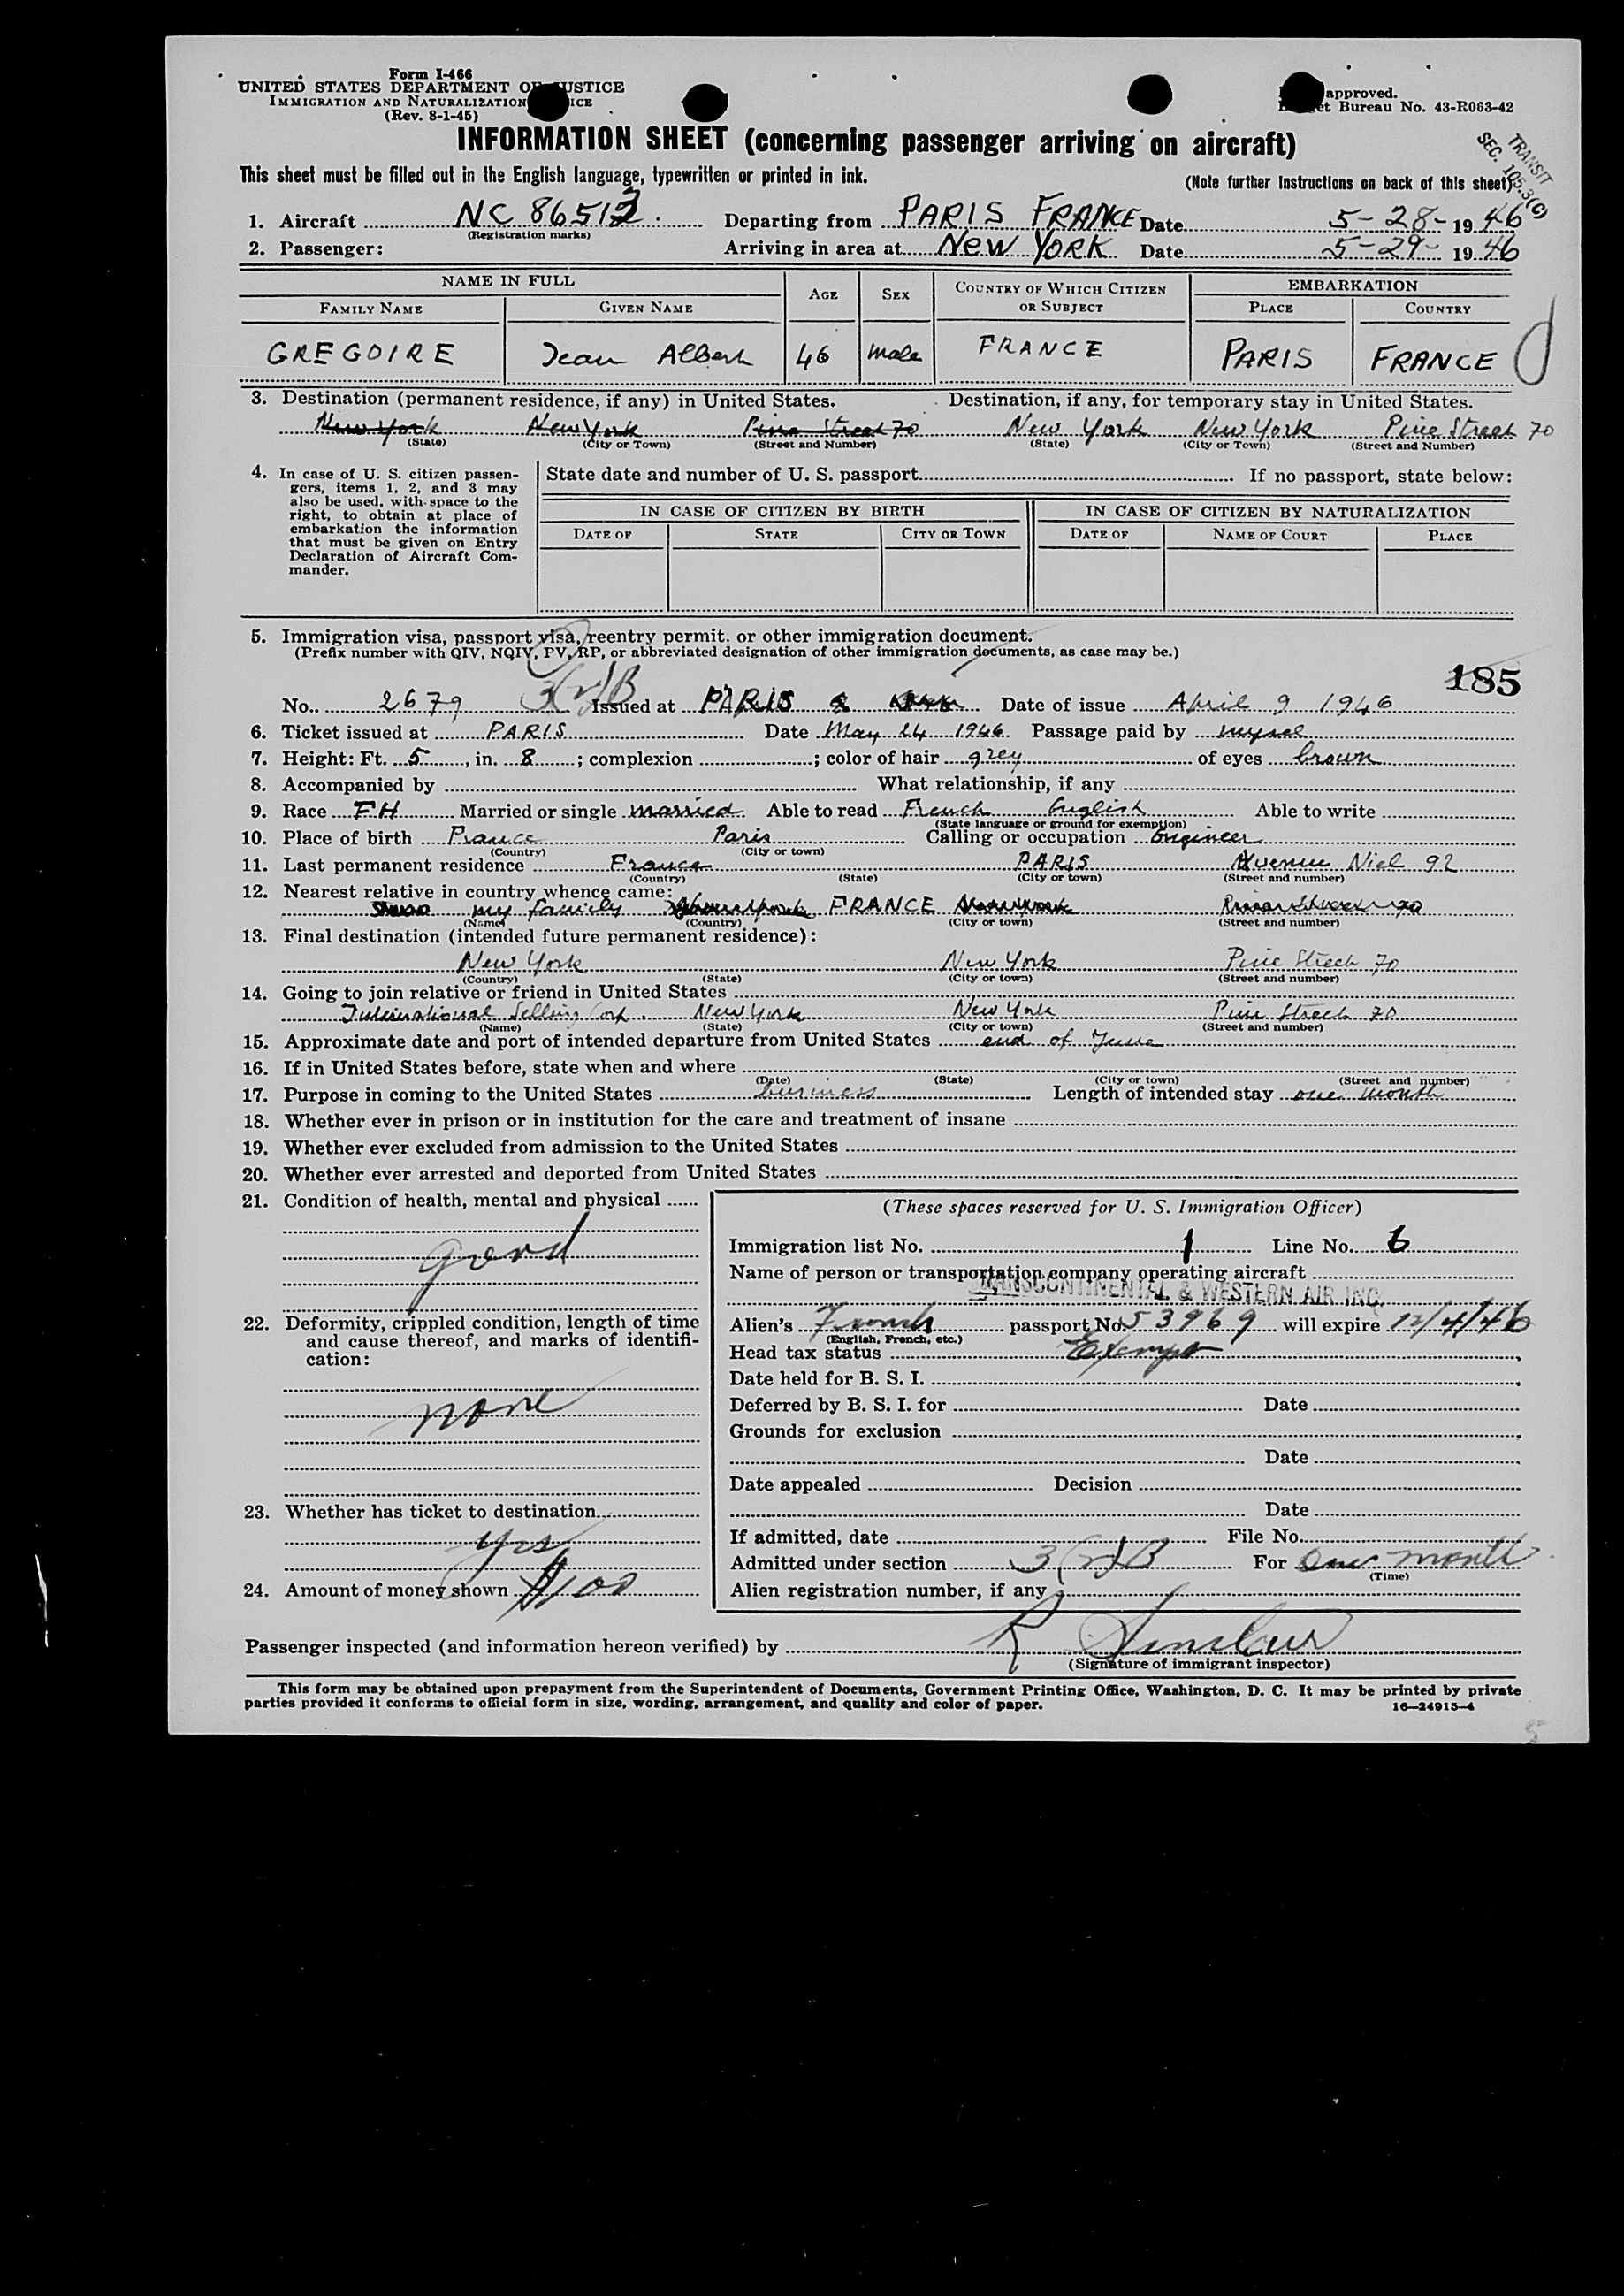 Form I-466
UNITED STATES DEPARTMENT OF JUSTICE
IMMIGRATION AND NATURALIZATION SERVICE
(Rev. 8-1-45)
approved.
Bureau No. 43-R063-42
INFORMATION SHEET (concerning passenger arriving on aircraft)
TRANSIT
SEC. 105.3(c)
This sheet must be filled out in the English language, typewritten or printed in ink.
(Note further instructions on back of this sheet)
1. Aircraft NC 86512. Departing from PARIS FRANCE Date 5-28- 1946
(Registration marks)
2. Passenger: Arriving in area at New York Date 5-29- 1946
NAME IN FULL AGE SEX COUNTRY OF WHICH CITIZEN OR SUBJECT EMBARKATION
FAMILY NAME GIVEN NAME PLACE COUNTRY
GREGOIRE Jean Albert 46 male FRANCE PARIS FRANCE
3. Destination (permanent residence, if any) in United States. Destination, if any, for temporary stay in United States.
New York New York Pine Street 70 New York New York Pine Street 70
(State) (City or Town) (Street and Number) (State) (City or Town) (Street and Number)
4. In case of U. S. citizen passengers, items 1, 2, and 3 may also be used, with space to the right, to obtain at place of embarkation the information that must be given on Entry Declaration of Aircraft Commander.
State date and number of U. S. passport If no passport, state below:
IN CASE OF CITIZEN BY BIRTH IN CASE OF CITIZEN BY NATURALIZATION
DATE OF STATE CITY OR TOWN DATE OF NAME OF COURT PLACE
5. Immigration visa, passport visa, reentry permit. or other immigration document.
(Prefix number with QIV, NQIV, PV, RP, or abbreviated designation of other immigration documents, as case may be.)
185
No. 2679 3(2)B Issued at PARIS Date of issue April 9 1946
6. Ticket issued at PARIS Date May 24 1946 Passage paid by mysel
7. Height: Ft. 5, in. 8; complexion ; color of hair grey of eyes brown
8. Accompanied by What relationship, if any
9. Race FH Married or single married. Able to read French English Able to write
(State language or ground for exemption)
10. Place of birth France Paris Calling or occupation Engineer
(Country) (City or town)
11. Last permanent residence France PARIS Avenue Niel 92
(Country) (State) (City or town) (Street and number)
12. Nearest relative in country whence came:
my family FRANCE
(Name) (Country) (City or town) (Street and number)
13. Final destination (intended future permanent residence):
New York New York Pine Street 70
(Country) (State) (City or town) (Street and number)
14. Going to join relative or friend in United States
International Selling Corp. New York New York Pine Street 70
(Name) (State) (City or town) (Street and number)
15. Approximate date and port of intended departure from United States end of June
16. If in United States before, state when and where
(Date) (State) (City or town) (Street and number)
17. Purpose in coming to the United States business Length of intended stay one month
18. Whether ever in prison or in institution for the care and treatment of insane
19. Whether ever excluded from admission to the United States
20. Whether ever arrested and deported from United States
21. Condition of health, mental and physical
good
22. Deformity, crippled condition, length of time and cause thereof, and marks of identification:
none
23. Whether has ticket to destination
yes
24. Amount of money shown $100
(These spaces reserved for U. S. Immigration Officer)
Immigration list No. 1 Line No. 6
Name of person or transportation company operating aircraft
TRANSCONTINENTAL & WESTERN AIR INC.
Alien's French passport No. 53969 will expire 12/4/46
(English, French, etc.)
Head tax status Exempt
Date held for B. S. I.
Deferred by B. S. I. for Date
Grounds for exclusion
Date
Date appealed Decision
Date
If admitted, date File No.
Admitted under section 3(2)B For One month
(Time)
Alien registration number, if any
Passenger inspected (and information hereon verified) by R Sinclair
(Signature of immigrant inspector)
This form may be obtained upon prepayment from the Superintendent of Documents, Government Printing Office, Washington, D. C. It may be printed by private
parties provided it conforms to official form in size, wording, arrangement, and quality and color of paper.
16—24915-4
5